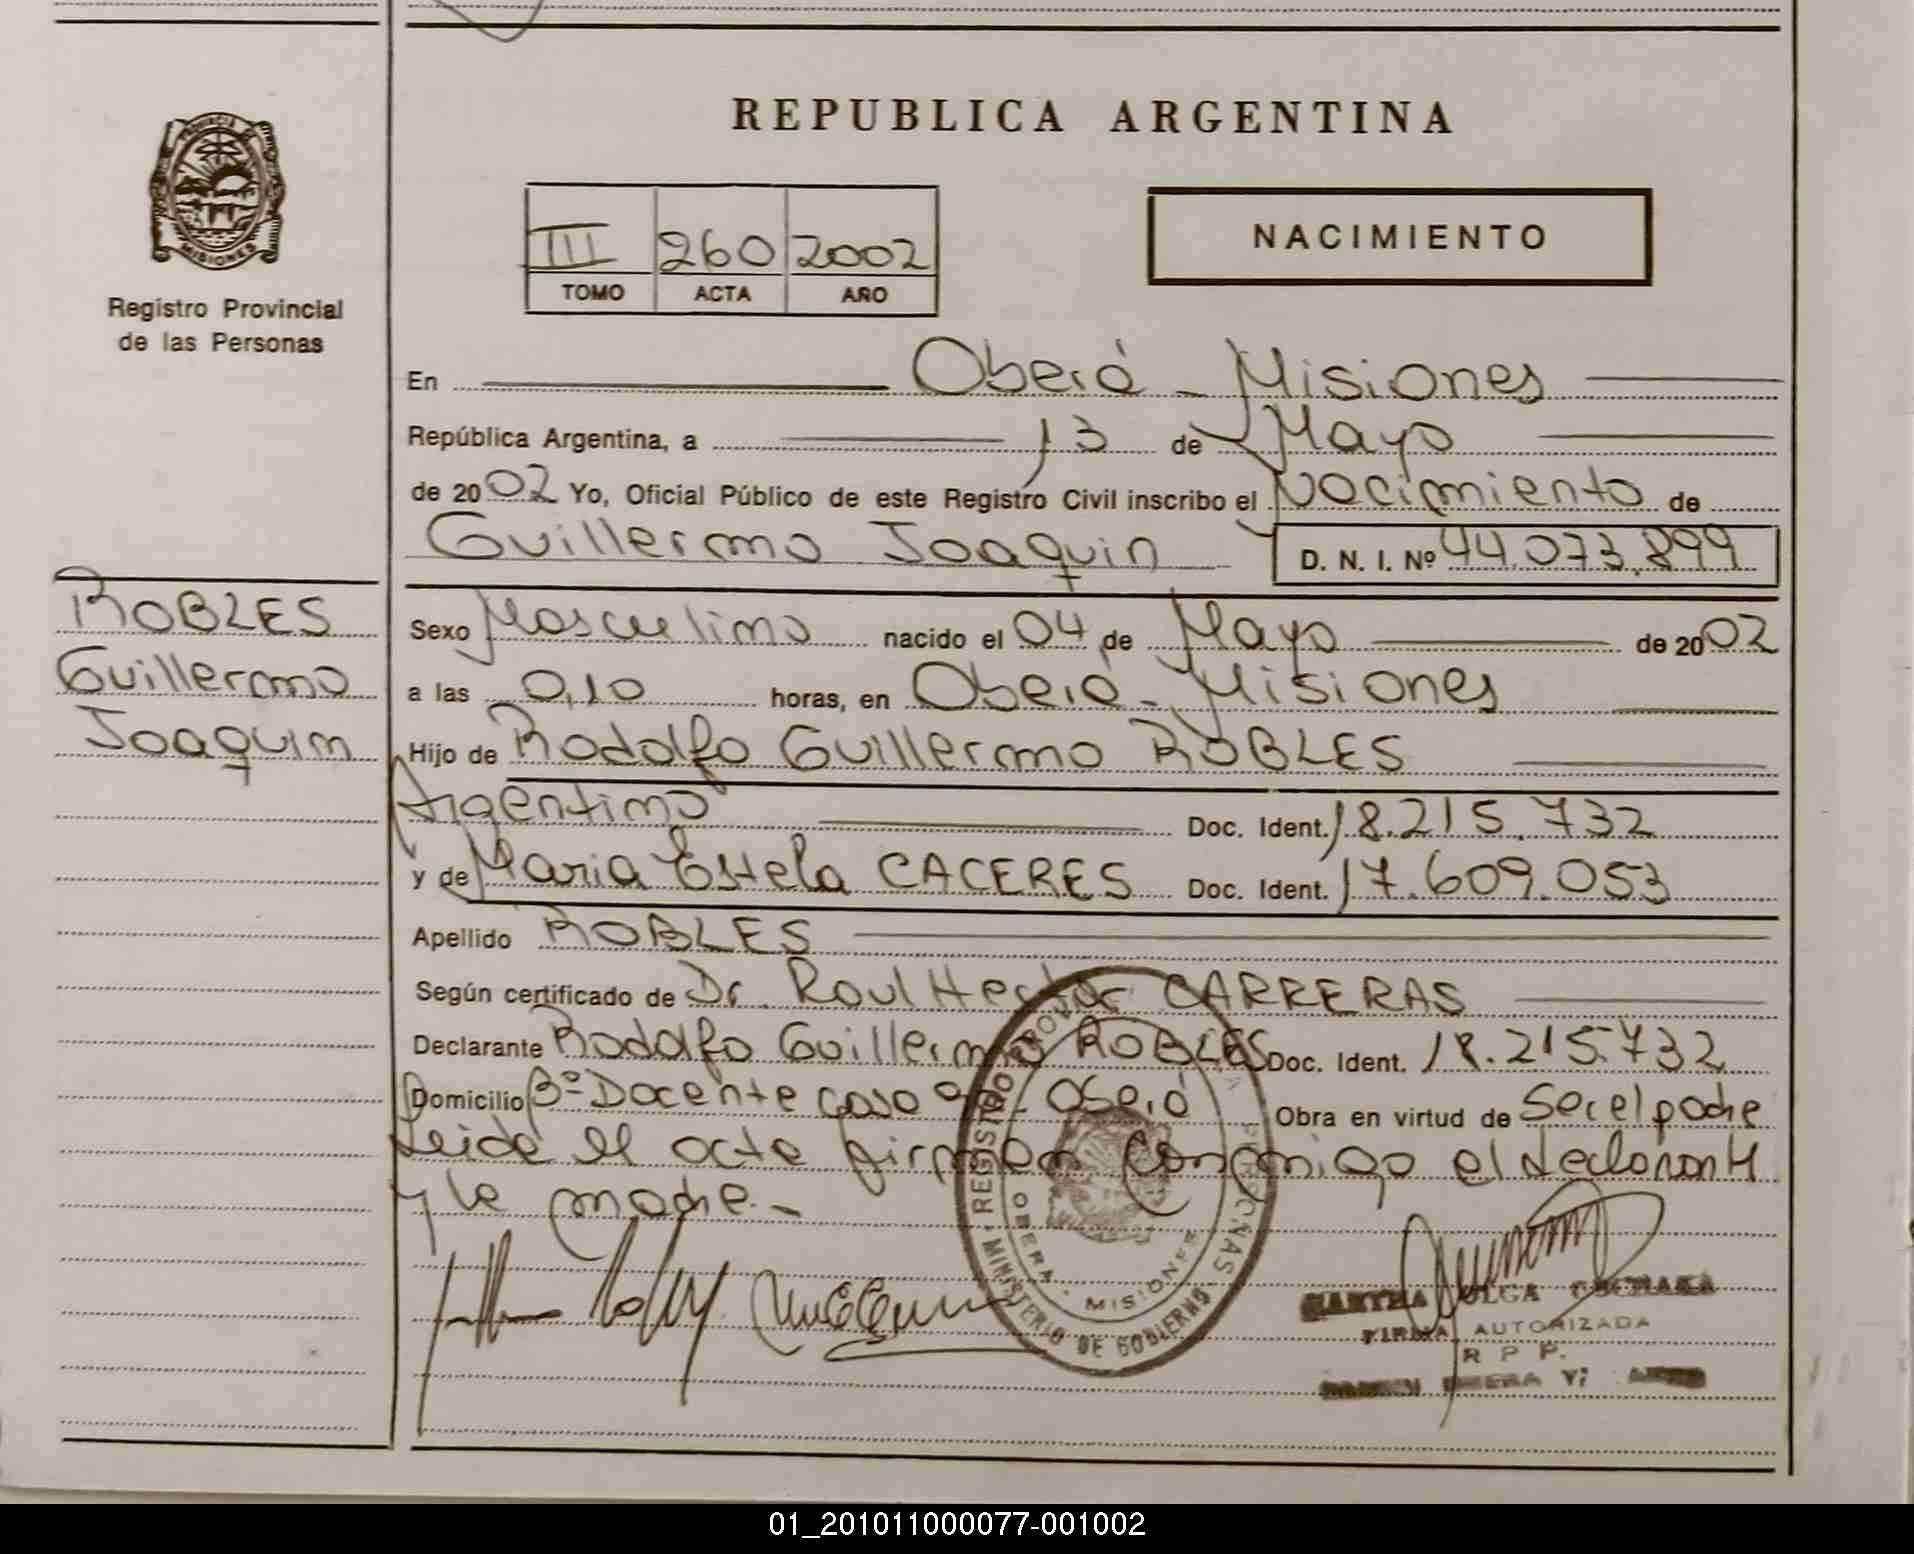 REPUBLICA ARGENTINA
PROVINCIA DE
MISIONES
Registro Provincial
de las Personas
III 260 2002
TOMO ACTA AÑO
NACIMIENTO
En Oberá - Misiones
República Argentina, a 13 de Mayo
de 2002 Yo, Oficial Público de este Registro Civil inscribo el Nacimiento de
Guillermo Joaquin D. N. I. Nº 44.073.899
ROBLES
Guillermo
Joaquin
Sexo Masculino nacido el 04 de Mayo de 2002
a las 0,10 horas, en Oberá - Misiones
Hijo de Rodolfo Guillermo ROBLES
Argentino Doc. Ident. 18.215.732
y de Maria Estela CACERES Doc. Ident. 17.609.053
Apellido ROBLES
Según certificado de Dr. Raul Hector CARRERAS
Declarante Rodolfo Guillermo ROBLES Doc. Ident. 18.215.732
Domicilio Bº Docente casa Oberá Obra en virtud de Ser el padre
Leida el acta firman conmigo el declarante
y la madre.-
REGISTRO PROVINCIAL PERSONAS
MINISTERIO DE GOBIERNO
OBERA - MISIONES
MARTHA OLGA
FIRMA AUTORIZADA
R P P.
01_201011000077-001002